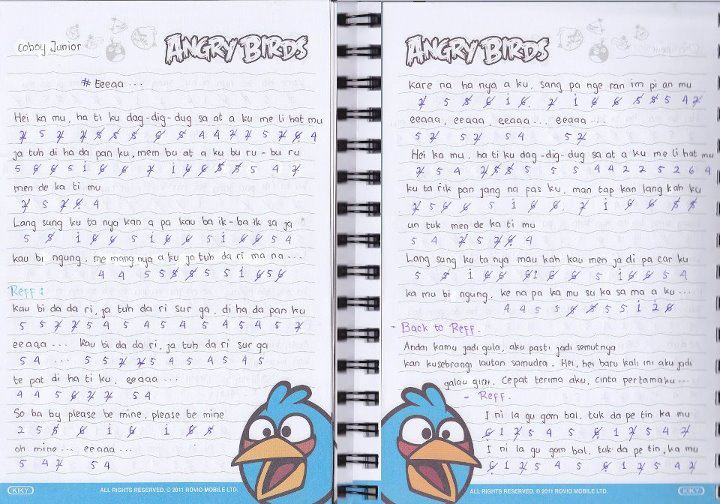 Coboy Junior
ANGRY BIRDS
# Eeeaa ...
Hei ka mu, ha ti ku dag-dig-dug sa at a ku me li hat mu
ja tuh di ha da pan ku, mem bu at a ku bu ru - bu ru
men de ka ti mu
Lang sung ku ta nya kan a pa kau ba ik - ba ik sa ja
kau bi ngung, me mang nya a ku ja tuh da ri ma na ...
4 4 5 5 5 5 5 1 6 5 6
Reff :
kau bi da da ri, ja tuh da ri sur ga, di ha da pan ku
5 5 7 7 5 4 5 4 5 4 5 4 5 4 5 7
eeaaa ... kau bi da da ri, ja tuh da ri sur ga
5 4 ... 5 5 7 7 5 4 5 4 5 4 5
te pat di ha ti ku, eeaaa ...
4 4 5 6 7 7 5 4
So ba by please be mine, please be mine
oh mine ... eeaaa ...
5 4 7 5 4
KKY
ALL RIGHTS RESERVED. © 2011 ROVIO MOBILE LTD.
ANGRY BIRDS
kare na ha nya a ku, sang pa nge ran im pi an mu
eeaaa, eeaaa, eeaaa ... eeaaa ...
5 7 5 7 5 4 5 7
Hei ka mu, ha ti ku dag-dig-dug sa at a ku me li hat mu
ku ta rik pan jang na pas ku, man tap kan lang kah ku
un tuk men de ka ti mu
5 4 7 5 7 6 4
Lang sung ku ta nya mau kah kau men ja di pa car ku
ka mu bi ngung, ke na pa ka mu su ka sa ma a ku ...
4 4 5 5 6 6 5 5 1 2 6
- Back to Reff.
Andai kamu jadi gula, aku pasti jadi semutnya
kan kusebrangi lautan samudra. Hei, hei baru kali ini aku jadi
galau gini. Cepat terima aku, cinta pertamaku ...
- Reff.
I ni la gu gom bal, tuk da pe tin ka mu
6 1 7 5 4 5 6 1 7 5 4 7
I ni la gu gom bal, tuk da pe tin, ka mu
6 1 7 5 4 5 6 1 7 5 4 7
ALL RIGHTS RESERVED. © 2011 ROVIO MOBILE LTD.
KKY